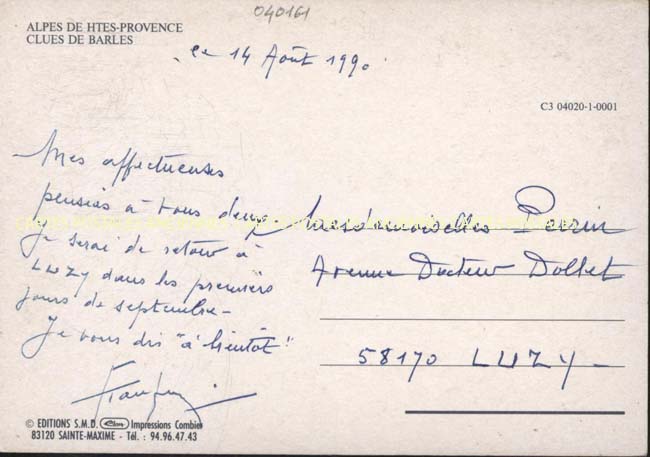 040161
ALPES DE HTES-PROVENCE
CLUES DE BARLES
ce 14 Août 1990
C3 04020-1-0001
Mes affectueuses
pensées à vous deux
Je serai de retour à
LUZY dans les premiers
jours de septembre-
Je vous dis "à bientôt"
Mesdemoiselles Perrin
Avenue Docteur Dollet
58170 LUZY-
© EDITIONS S.M.D. Impressions Combier
83120 SAINTE-MAXIME - Tél. : 94.96.47.43